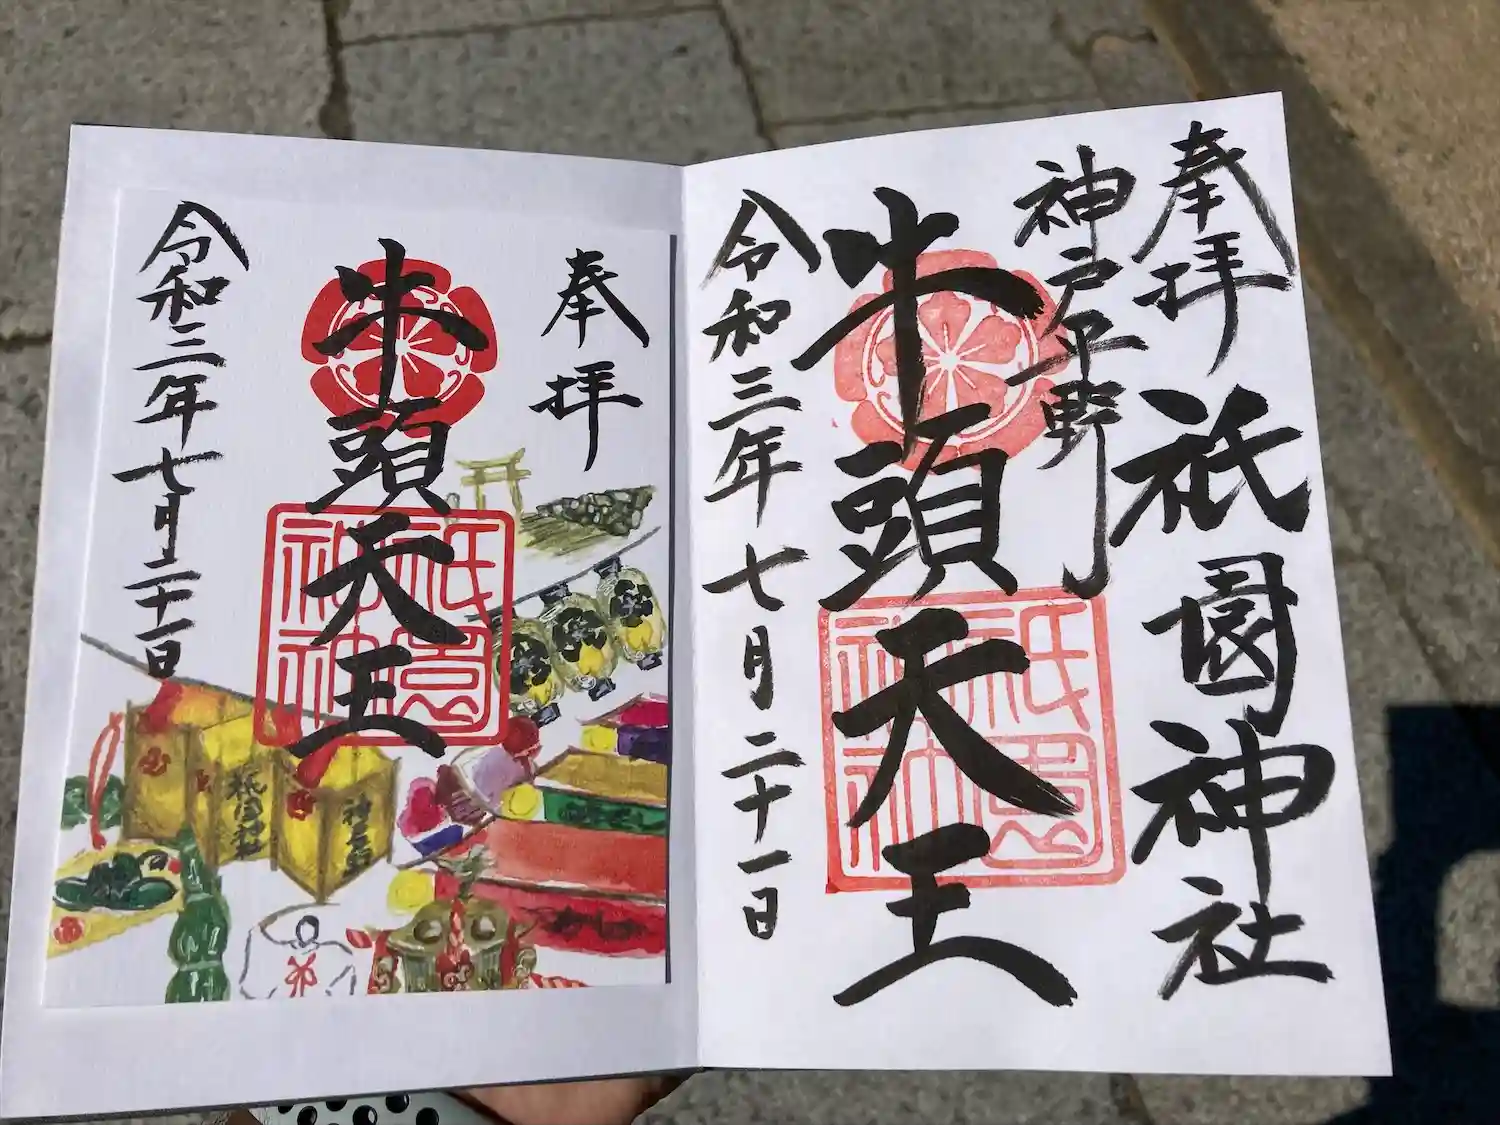 奉拝
祇園神社
神戸平野
牛頭天王
令和三年七月二十一日
祇園神社
奉拝
牛頭天王
令和三年七月二十一日
祇園神社
祇園神社
神戸平野